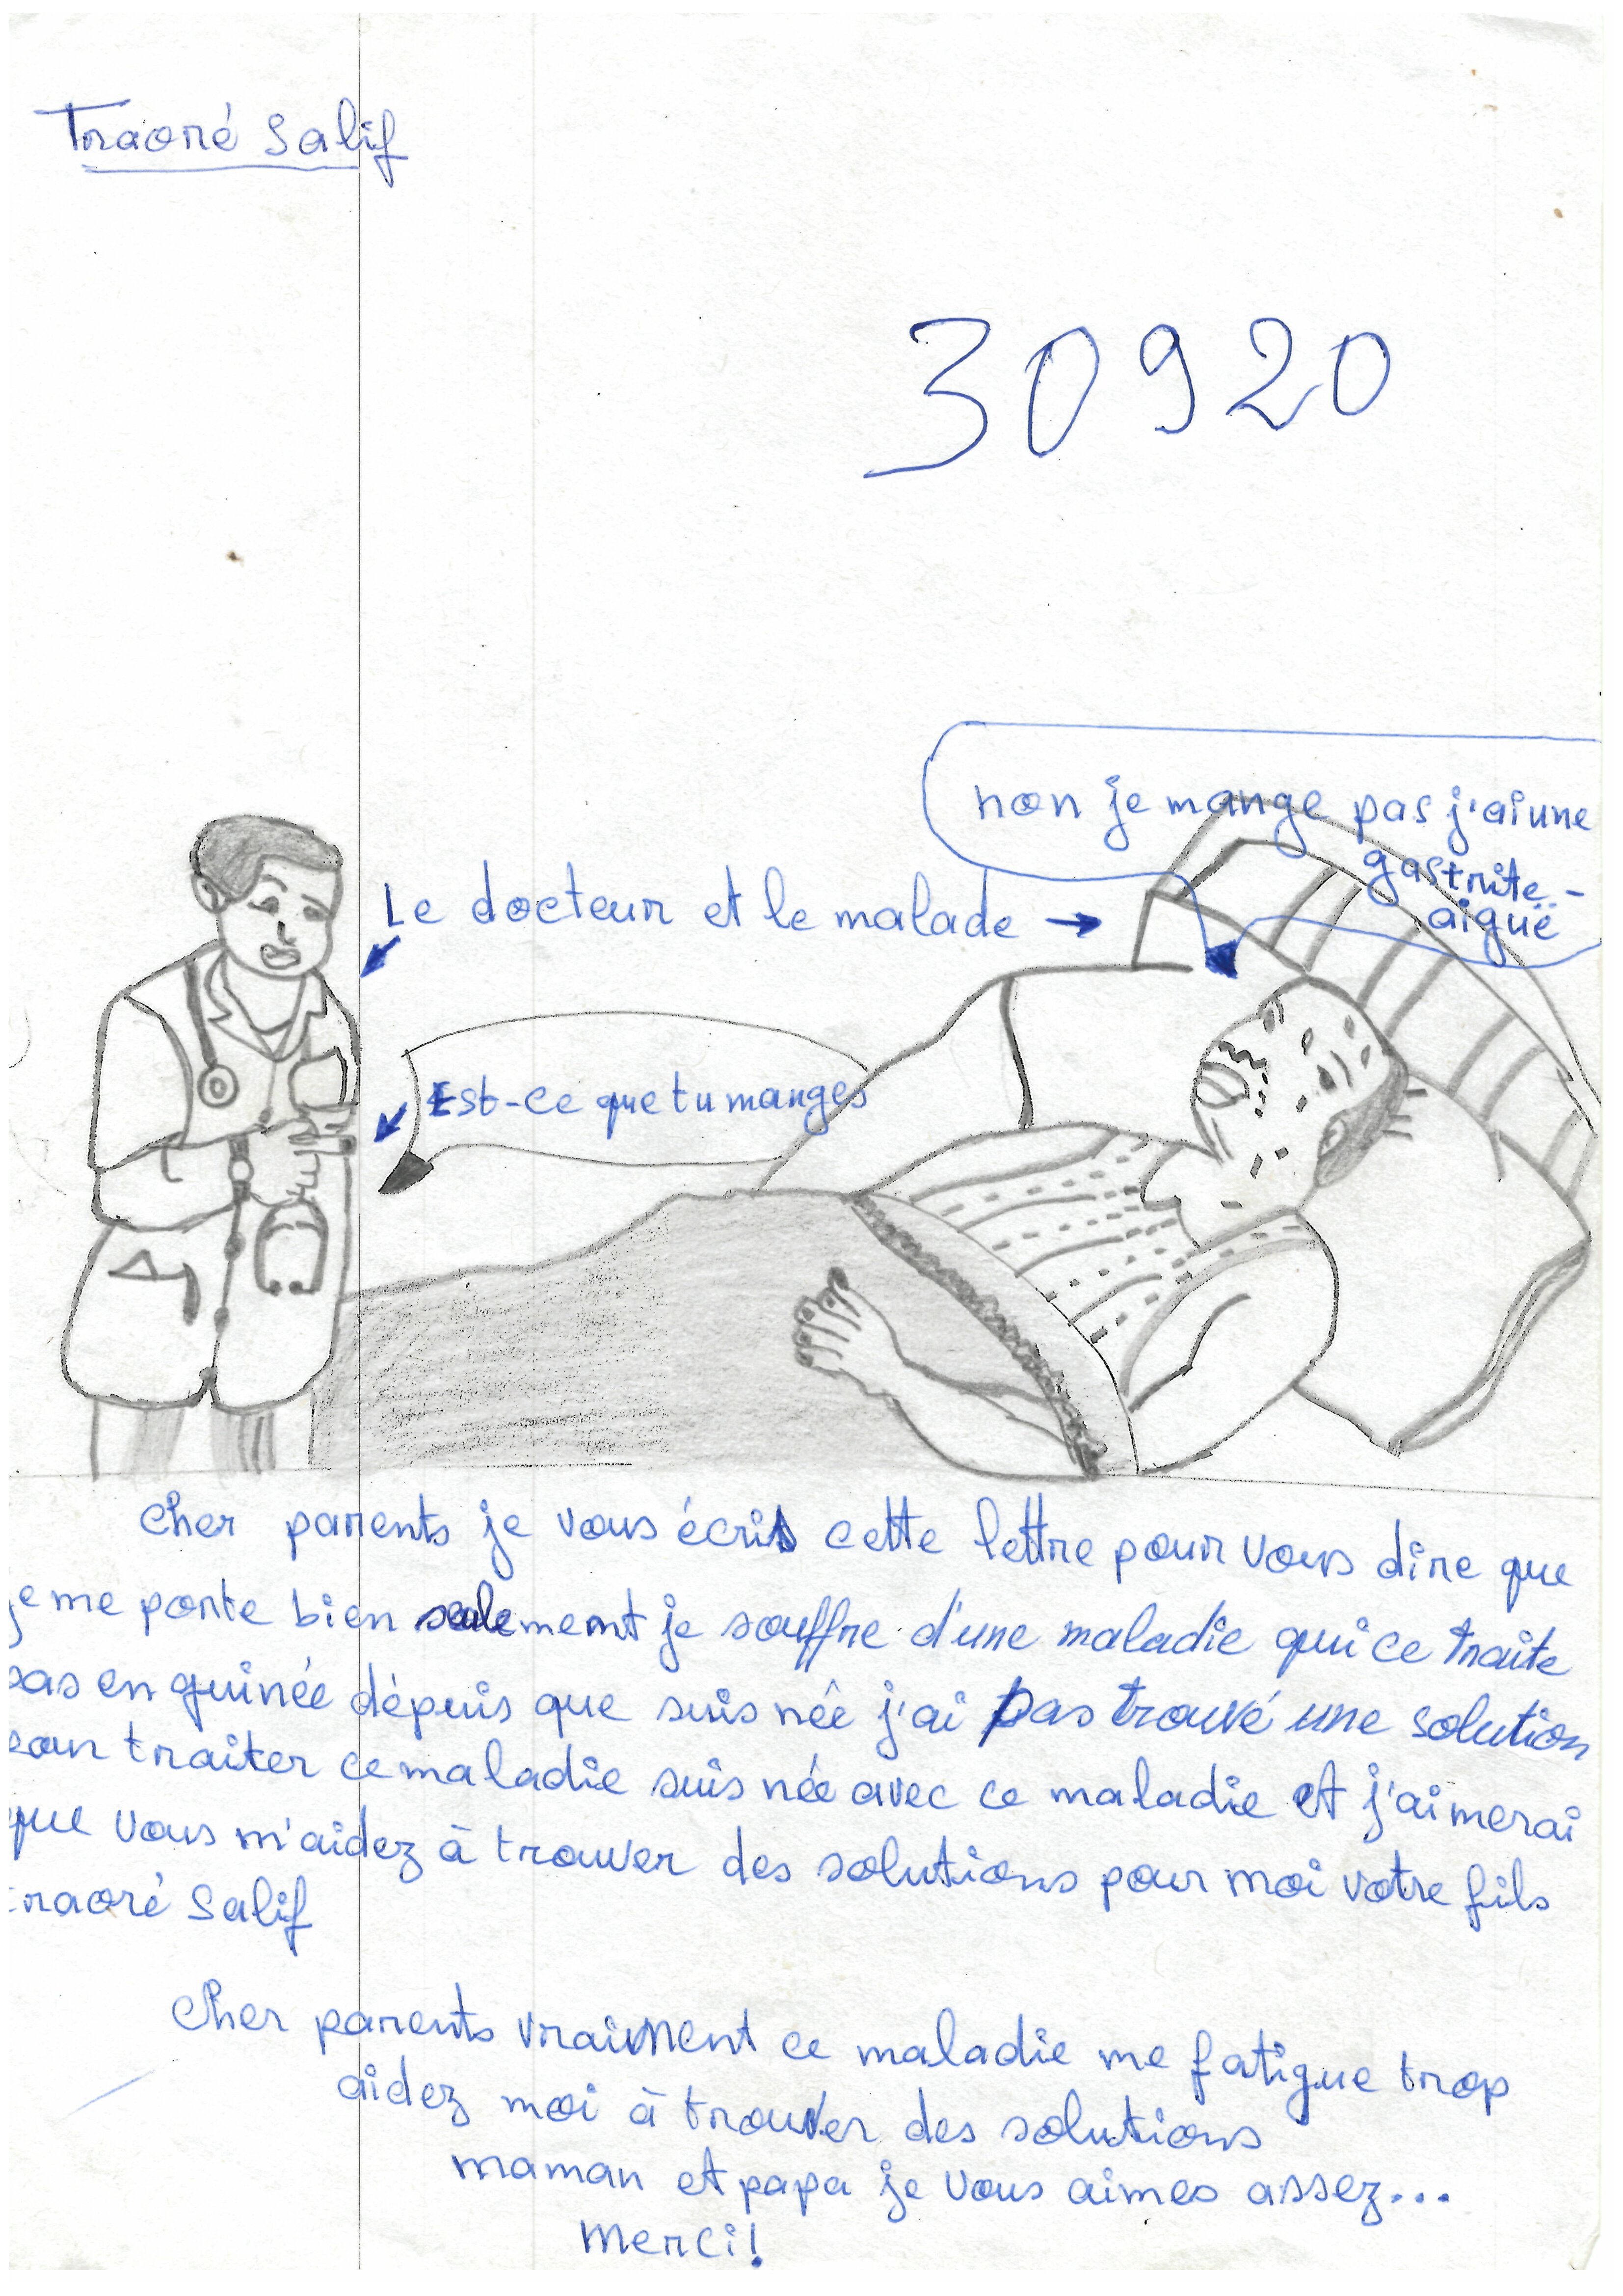 Traoré Salif
30920
non je mange pas j'ai une
gastrite-
aiguë
Le docteur et le malade →
Est-ce que tu manges
cher parents je vous écris cette lettre pour vous dire que
je me porte bien seulement je souffre d'une maladie qui ce traite
pas en guinée dépuis que suis née j'ai pas trouvé une solution
pour traiter ce maladie suis née avec ce maladie et j'aimerai
que vous m'aidez à trouver des solutions pour moi votre fils
traoré Salif
cher parents vraiment ce maladie me fatigue trop
aidez moi à trouver des solutions
maman et papa je vous aimes assez...
Merci!